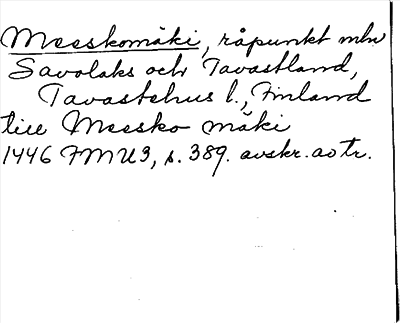 Meeskomäki, råpunkt mln
Savolaks och Tavastland,
Tavastehus l., Finland
till Meesko mäki
1446 FMU3, s. 389. avskr. av tr.